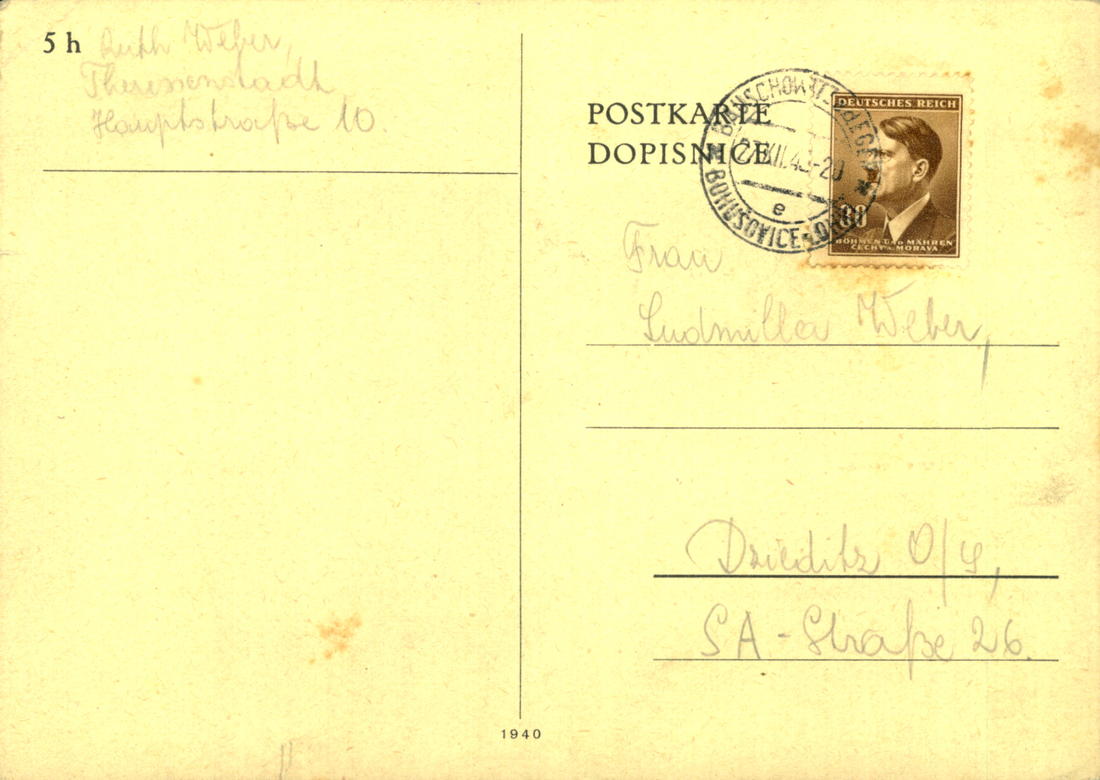 5 h
Ruth Weber,
Theresienstadt
Hauptstraße 10.
POSTKARTE
DOPISNICE
BAUSCHOWITZ
BOHUŠOVICE
e
DEUTSCHES REICH
BÖHMEN UND MÄHREN
ČECHY A MORAVA
Frau
Ludmilla Weber,
Dzieditz O/S,
SA-Straße 26.
1940